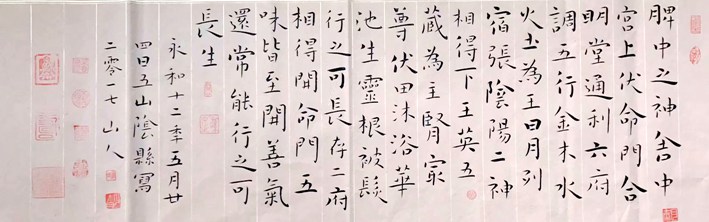 脾中之神舍中
宫上伏命門合
明堂通利六府
調五行金木水
火土為王日月列
宿張陰陽二神
相得下王英五
藏為主腎寂
尊伏田沐浴華
池生靈根被髮
行之可長存二府
相得開命門五
味皆至開善氣
還常能行之可
長生
永和十二年五月廿
四日五山陰縣寫
二零一七山人